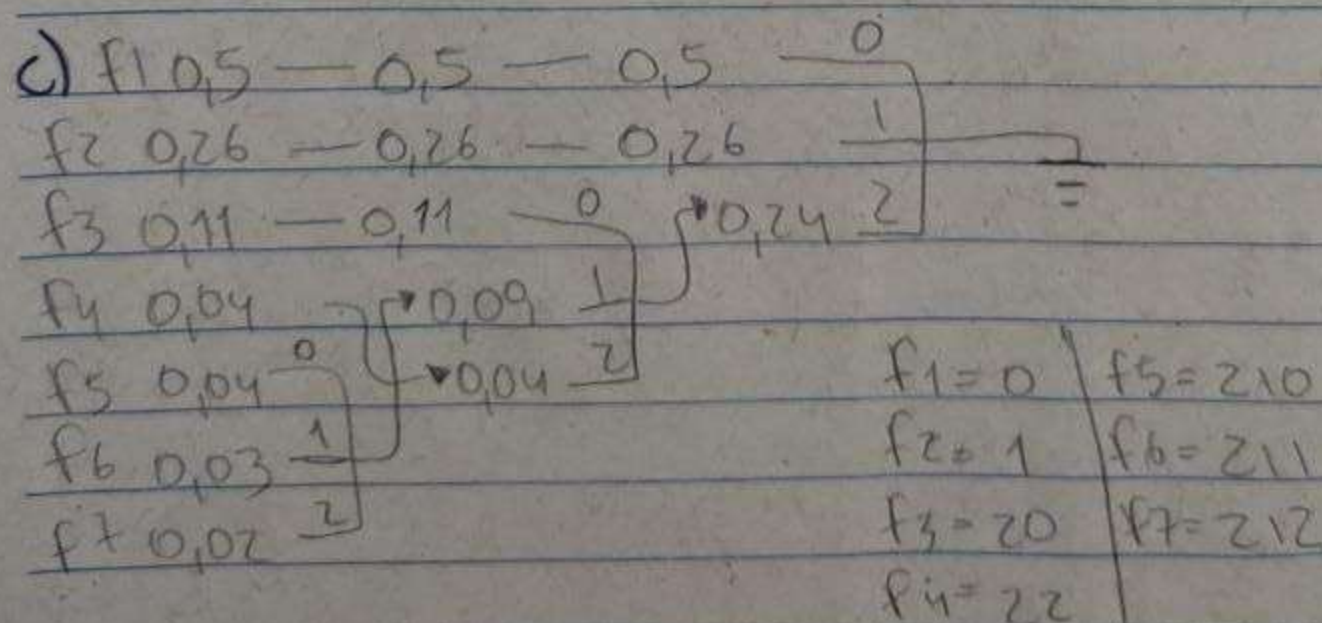 c) f1 0,5 — 0,5 — 0,5 — 0
f2 0,26 — 0,26 — 0,26 — 1
f3 0,11 — 0,11 — 0 0,24 2
f4 0,04 0,09 1
f5 0,04 0 0,04 2
f6 0,03 1
f7 0,02 2
f1=0 f5=210
f2=1 f6=211
f3=20 f7=212
f4=22